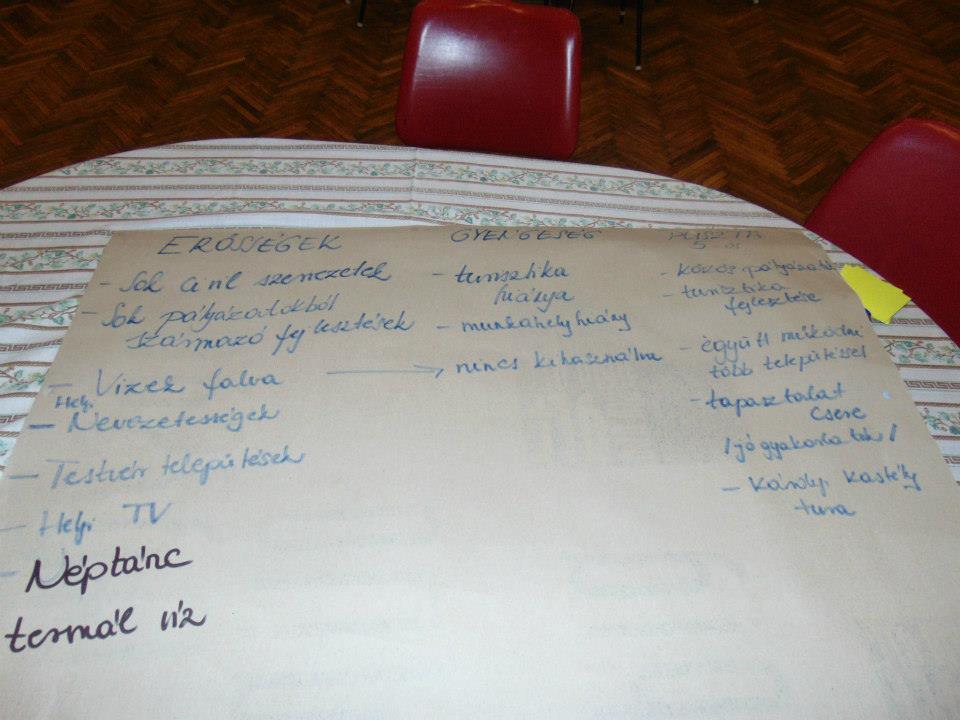 ERŐSSÉGEK
- Sok civil szervezetek
- Sok pályázatokból
származó fejlesztések
- Vizek falva
Helyi
- Nevezetességek
- Testvér települések
- Helyi TV
- Néptánc
termál víz
GYENGESÉG
- turisztika
hiánya
- munkahely hiány
nincs kihasználva
PUSZTA
5-ös
- közös pályázatok
- turisztika
fejlesztése
- együtt működni
több településsel
- tapasztalat
csere
/jó gyakorlatok/
- Károlyi kastély
túra